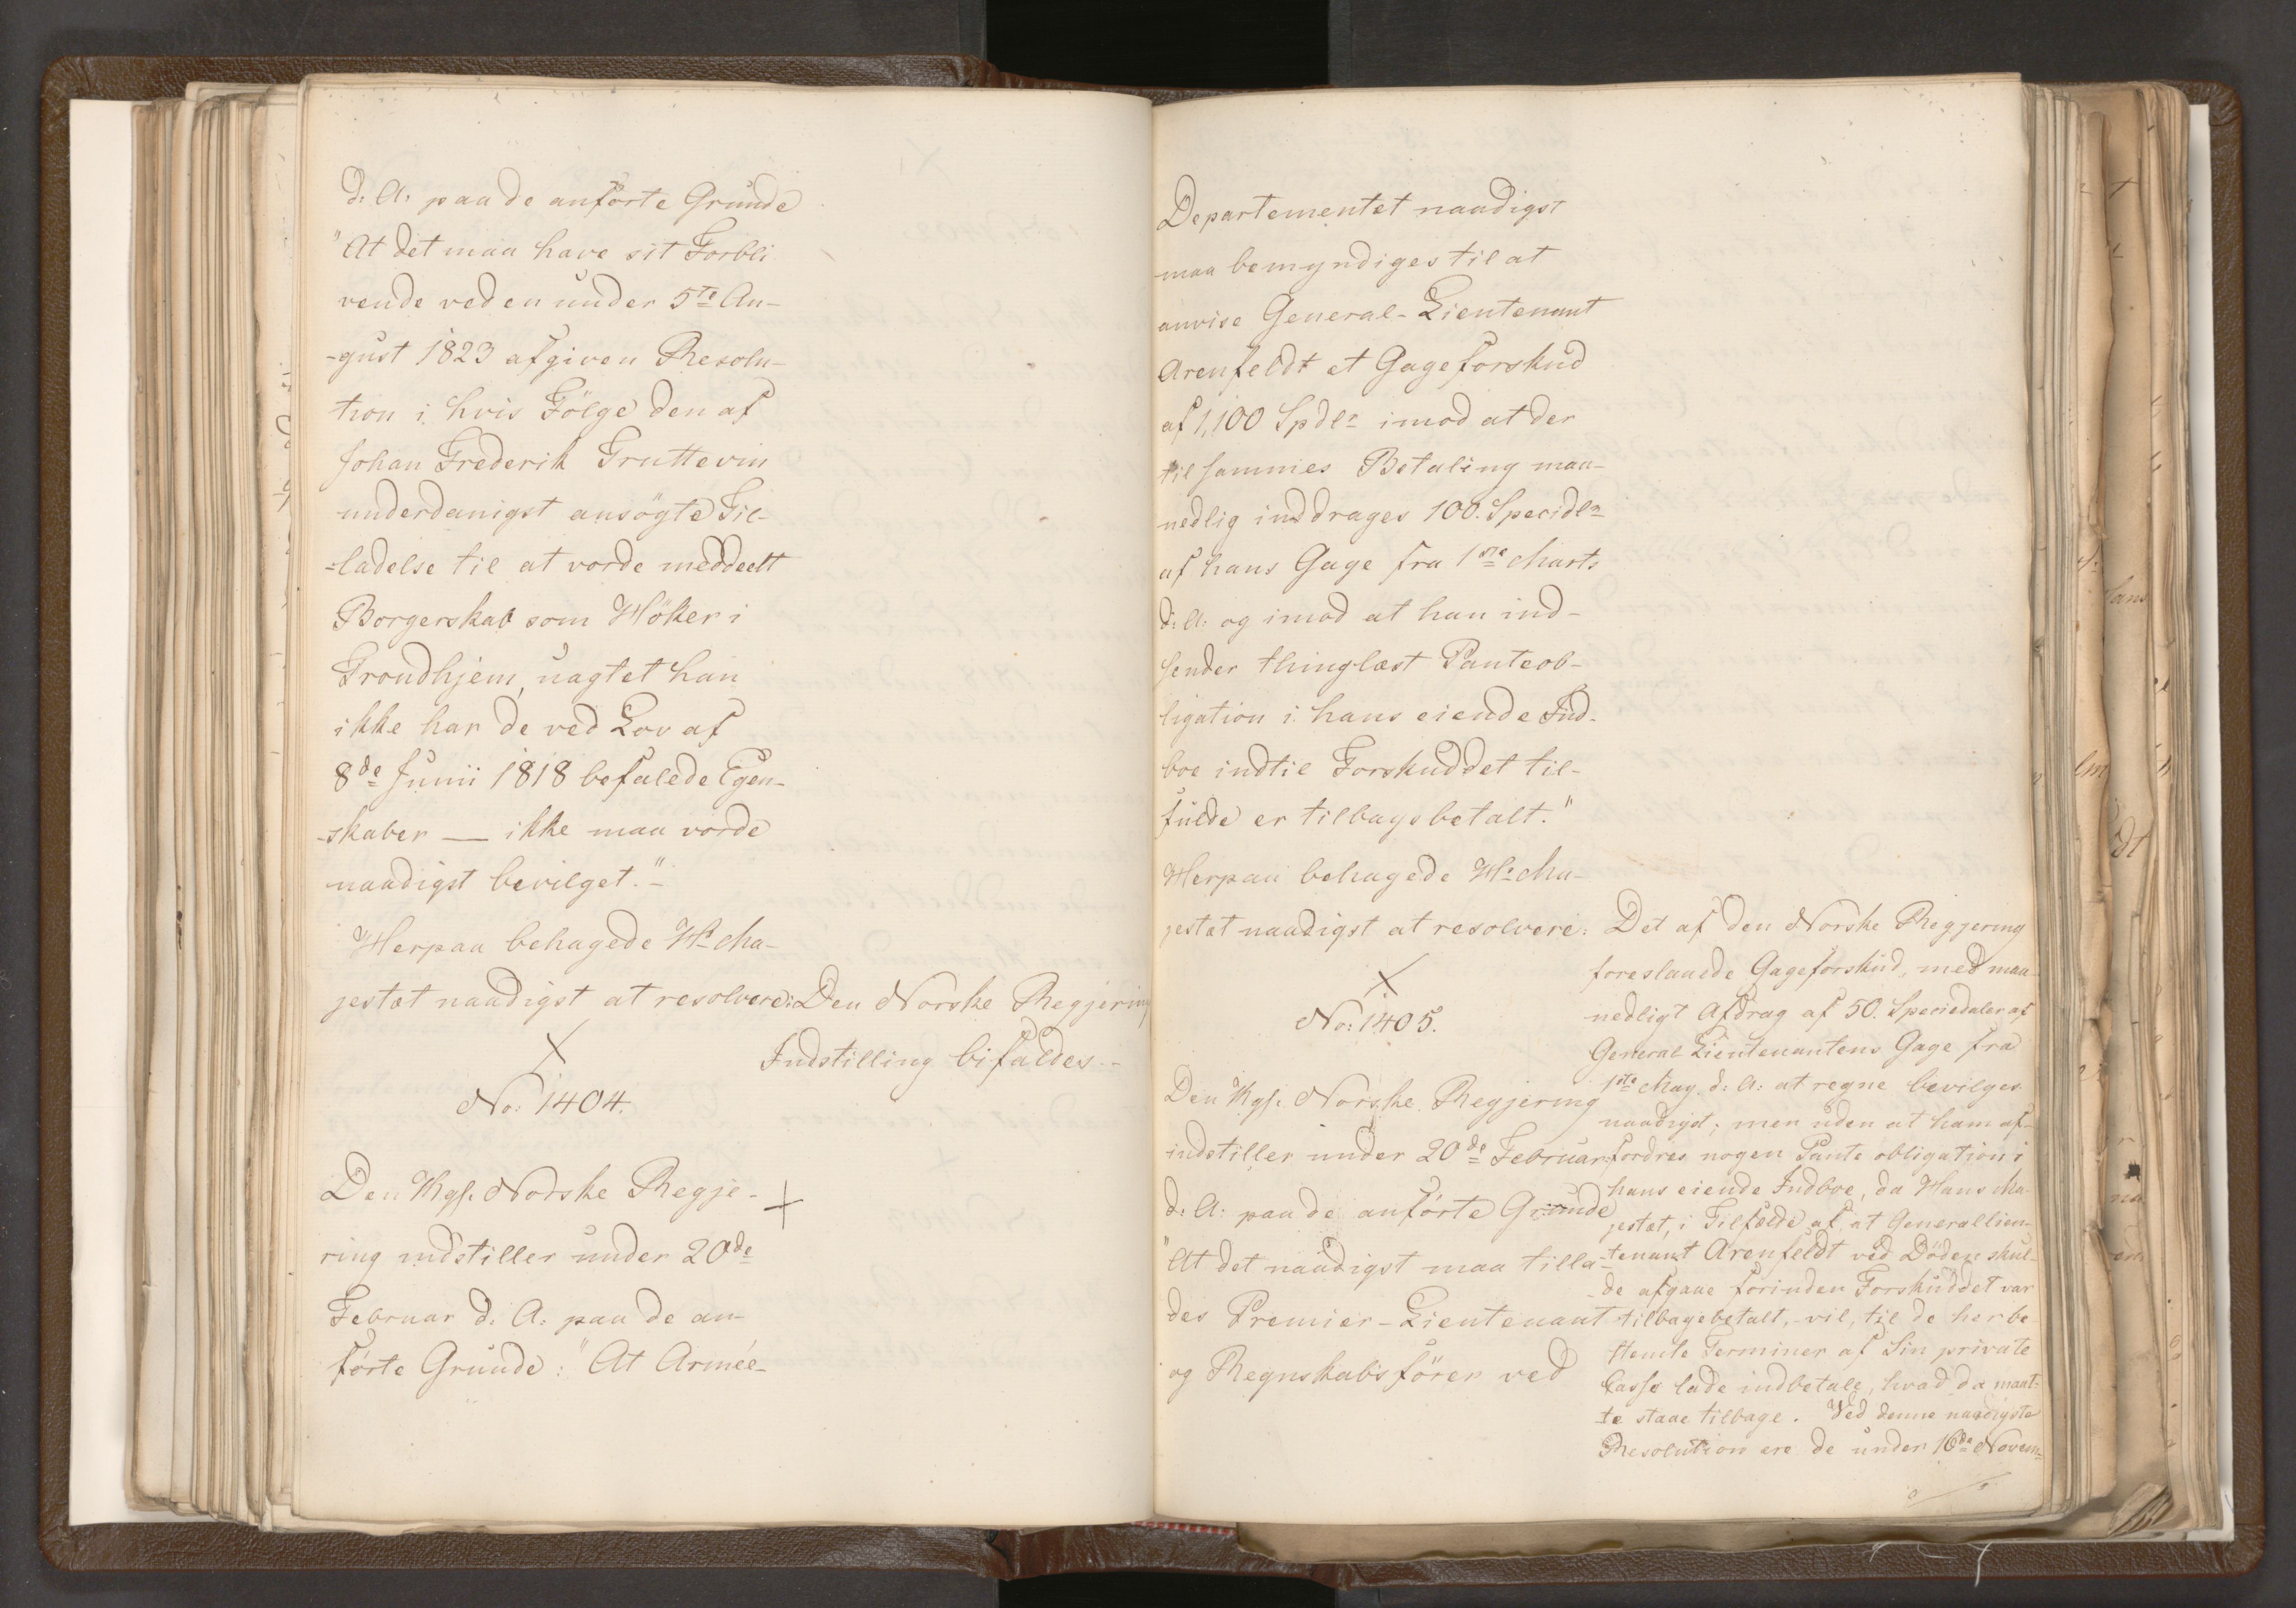 d: A: paa de anförte Grunde
"At det maa have sit Forbli
vende ved en under 5te Au-
-gust 1823 afgiven Resolu-
tion i hvis Fölge den af
Johan Frederik Gruttevin
underdanigst ansögte Til-
-ladelse til at vorde meddeelt
Borgerskab som Höker i
Trondhjem, uagtet han
ikke har de ved Lov af
8de Junii 1818 befalede Egen-
-skaber — ikke maa vorde
naadigst bevilget."-
Herpaa behagede Hs Ma-
jestæt naadigst at resolvere:
Den Norske Regjering
Indstilling bifaldes.-
No: 1404.
Den Kgl. Norske Regje-
ring indstiller under 20de
Februar d: A: paa de an-
förte Grunde: "At Armée-
Departementet naadigst
maa bemyndiges til at
anvise General-Lieutenant
Arenfeldt et Gageforskud
af 1,100 Spdlr imod at der
til sammes Betaling maa-
nedlig inddrages 100. Specidlr
af hans Gage fra 1ste Marts
d: A: og imod at han ind-
sender thinglæst Panteob-
ligation i hans eiende Ind-
boe indtil Forskuddet til-
fulde er tilbagebetalt."
Herpaa behagede Hs Ma-
jestæt naadigst at resolvere:
Det af den Norske Regjering
foreslaaede Gageforskud, med maa-
nedligt Afdrag af 50. Speciedaler af
General Lieutenantens Gage fra
1ste May d: A: at regne bevilges
naadigst; men uden at ham af-
fordres nogen Pante obligation i
hans eiende Indboe, da Hans Ma-
jestæt, i Tilfælde af at Generallieu-
-tenant Arenfeldt ved Döden skul-
-de afgaae forinden Forskuddet var
tilbagebetalt, vil, til de her be
stemte Terminer af Sin private
Casse lade indbetale, hvad da maat-
te staae tilbage. Ved denne naadigste
Resolution ere de under 16de Novem-
No: 1405.
Den Kgl. Norske Regjering
indstiller under 20de Februar
d: A: paa de anförte Grunde
"At det naadigst maa tilla-
des Premier-Lieutenant
og Regnskabsförer ved